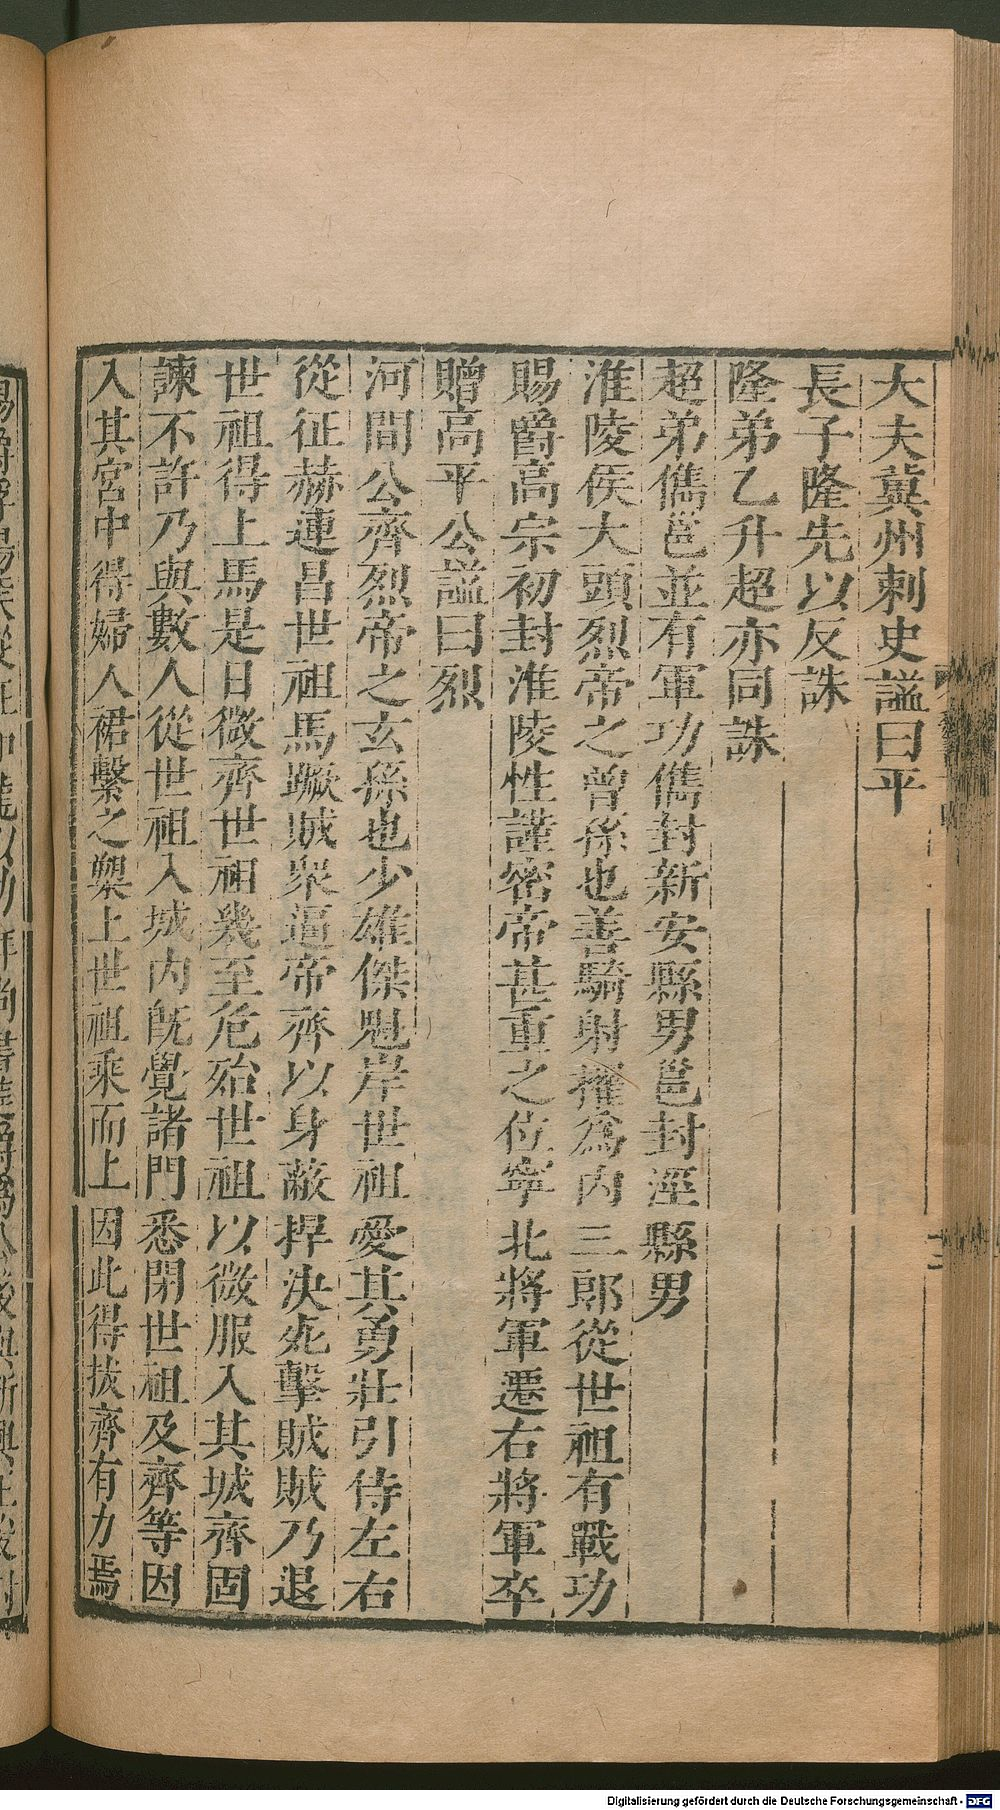 大夫冀州刺史謚曰平
長子隆先以反誅
隆弟乙升超亦同誅
超弟儁邕並有軍功儁封新安縣男邕封涇縣男
淮陵侯大頭烈帝之曾孫也善騎射擢爲內三郎從世祖有戰功
賜爵高宗初封淮陵性謹密帝甚重之位寧北將軍遷右將軍卒
贈高平公謚曰烈
河間公齊烈帝之玄孫也少雄傑魁岸世祖愛其勇壯引侍左右
從征赫連昌世祖馬蹶賊衆逼帝齊以身蔽捍決死擊賊賊乃退
世祖得上馬是日微齊世祖幾至危殆世祖以微服入其城齊固
諫不許乃與數人從世祖入城內旣覺諸門悉閉世祖及齊等因
入其宮中得婦人裙繫之槊上世祖乘而上因此得拔齊有力焉
Digitalisierung gefördert durch die Deutsche Forschungsgemeinschaft - DFG